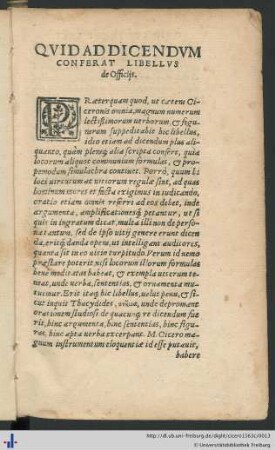 QVID AD DICENDVM
CONFERAT LIBELLVS
de Officijs.
PRæterquam quod, ut cæteri Ci-
ceronis omnia, magnum numerum
lectissimorum uerborum, & figu-
rarum suppeditabit hic libellus,
ideo etiam ad dicendum plus ali-
quanto, quàm pleraq; alia scripta confere, quia
locorum aliquot communium formulas, &
simulachra continet. Porrò, quum hi
loci uirtutum ac uitiorum regulæ sint, ad quas
hominum mores et facta exigimus in iudicando,
oratio etiam uomnis referri ad eos debet, inde
argumenta, amplificationesq; petantur, ut si
quis in ingratum dicat, multa illi non de perso-
na tantum, sed de ipso uitij genere erunt dicen-
da, eritq; danda opera, ut intelligant auditores,
quanta sit in eo uitio turpitudo. Verum id nemo
præstare poterit, nisi locorum illorum formulas
bene meditatas habeat, & exempla
nat, unde uerba, sententias, & ornamenta mu-
tuemur. Erit itaq; hic libellus, uelut penu, & si-
cut inquit Thucydides, unde depromant
oratorum studiosi de quacunq; re dicendum fue-
rit, hinc argumenta, hinc sententias, hinc figu-
ras, hinc apta uerba excerpant. M. Cicero ma-
gnum instrumentum eloquentiæ id esse putauit,
habere
http://dl.ub.uni-freiburg.de/diglit/cicero1563c/0013
© Universitätsbibliothek Freiburg